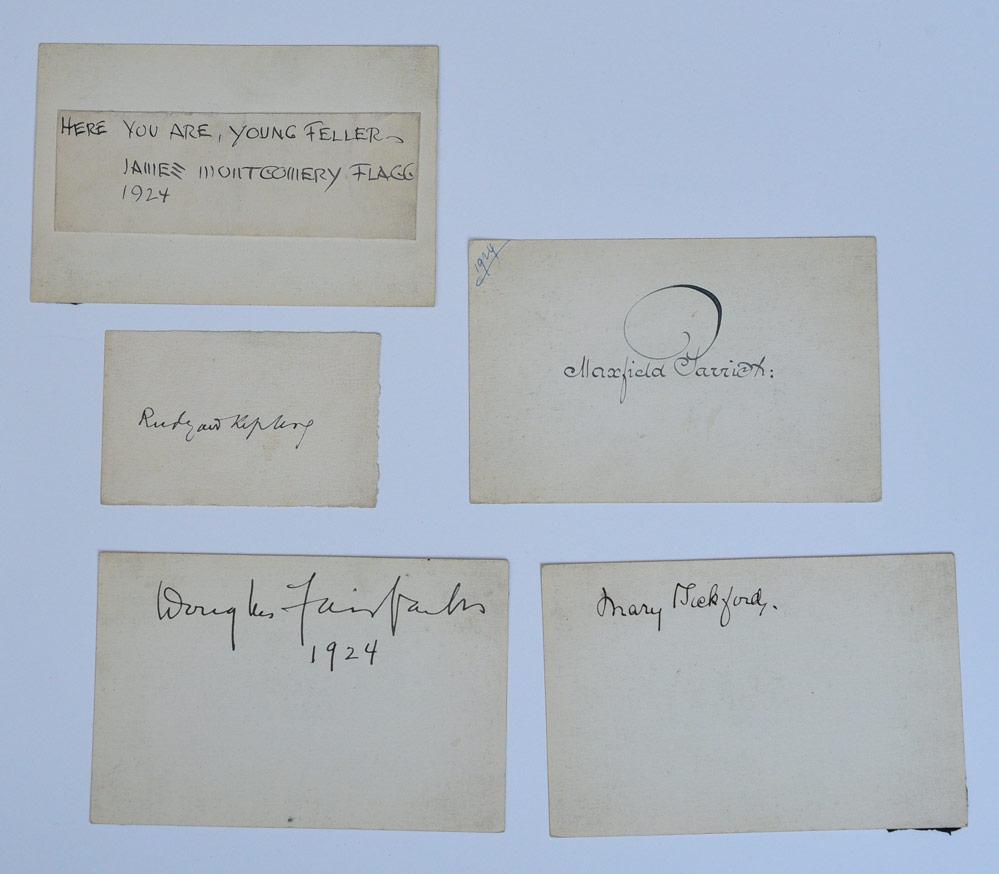 HERE YOU ARE, YOUNG FELLER
JAMES MONTGOMERY FLAGG
1924
1924
Maxfield Parrish:
Rudyard Kipling
Douglas Fairbanks
1924
Mary Pickford.